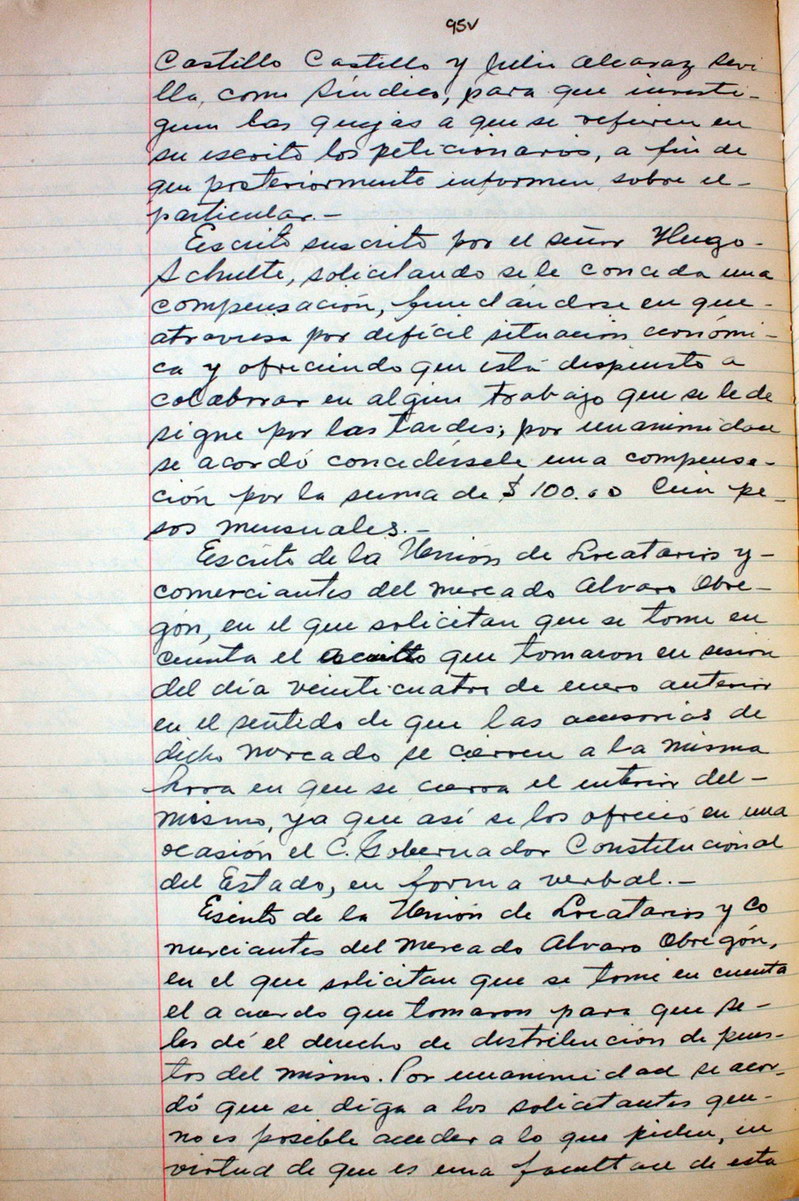 95v
Castillo Castillo y Julio Alcaraz Sevi
lla, como Síndico, para que investi-
guen las quejas a que se refieren en
su escrito los peticionarios, a fin de
que posteriormente informen sobre el-
particular.-
Escrito suscrito por el señor Hugo-
Schulte, solicitando se le conceda una
compensación, fundándose en que-
atraviesa por difícil situación económi-
ca y ofreciendo que está dispuesto a
colaborar en algún trabajo que se le de
signe por las tardes; por unanimidad
se acordó concedérsele una compensa-
ción por la suma de $100.00 Cien pe-
sos mensuales.-
Escrito de la Unión de Locatarios y-
comerciantes del mercado Alvaro Obre-
gón, en el que solicitan que se tome en
cuenta el que tomaron en sesión
del día veinticuatro de enero anterior
en el sentido de que las accesorias de
dicho mercado se cierren a la misma
hora en que se cierra el interior del-
mismo, ya que así se los ofreció en una
ocasión el C. Gobernador Constitucional
del Estado, en forma verbal.-
Escrito de la Unión de Locatarios y co
merciantes del mercado Alvaro Obregón,
en el que solicitan que se tome en cuenta
el acuerdo que tomaron para que se-
les dé el derecho de distribución de pues-
tos del mismo. Por unanimidad se acor-
dó que se diga a los solicitantes que-
no es posible acceder a lo que piden, en
virtud de que es una facultad de esta